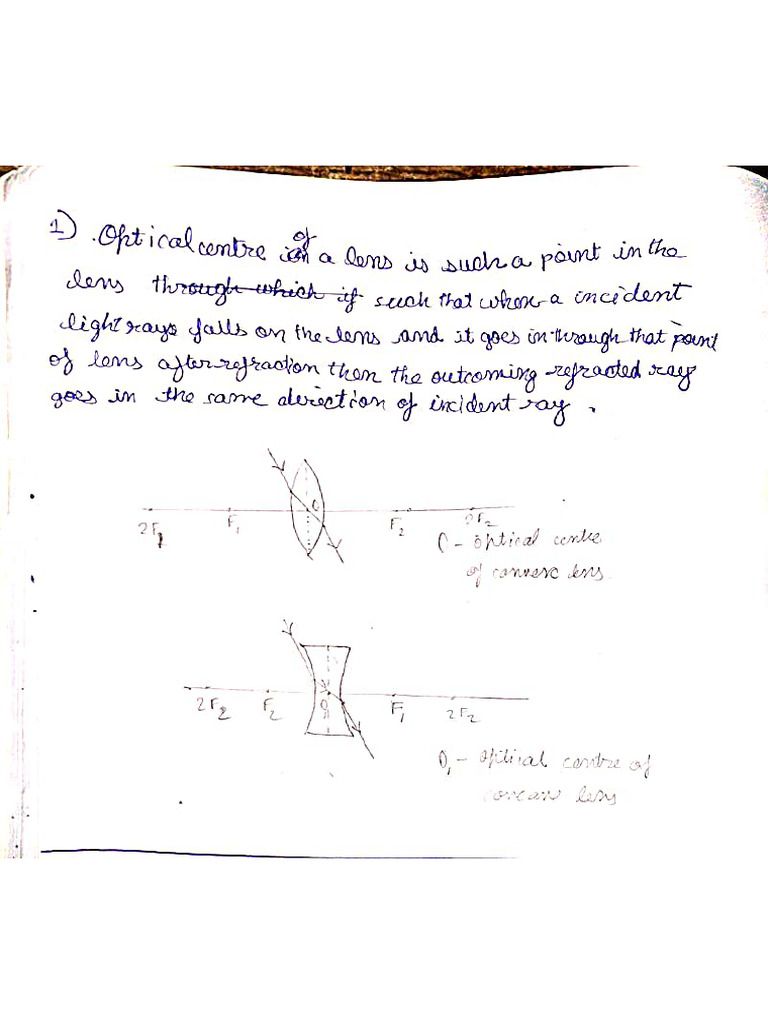 1) . Optical centre of a lens is such a point in the
lens through which if such that when a incident
light rays falls on the lens and it goes in through that point
of lens after refraction then the outcoming refracted ray
goes in the same direction of incident ray .
C
2F1 F1 F2 2F2
C - optical centre
of convex lens.
2F2 F2 O1 F1 2F2
O1 - optical centre of
concave lens